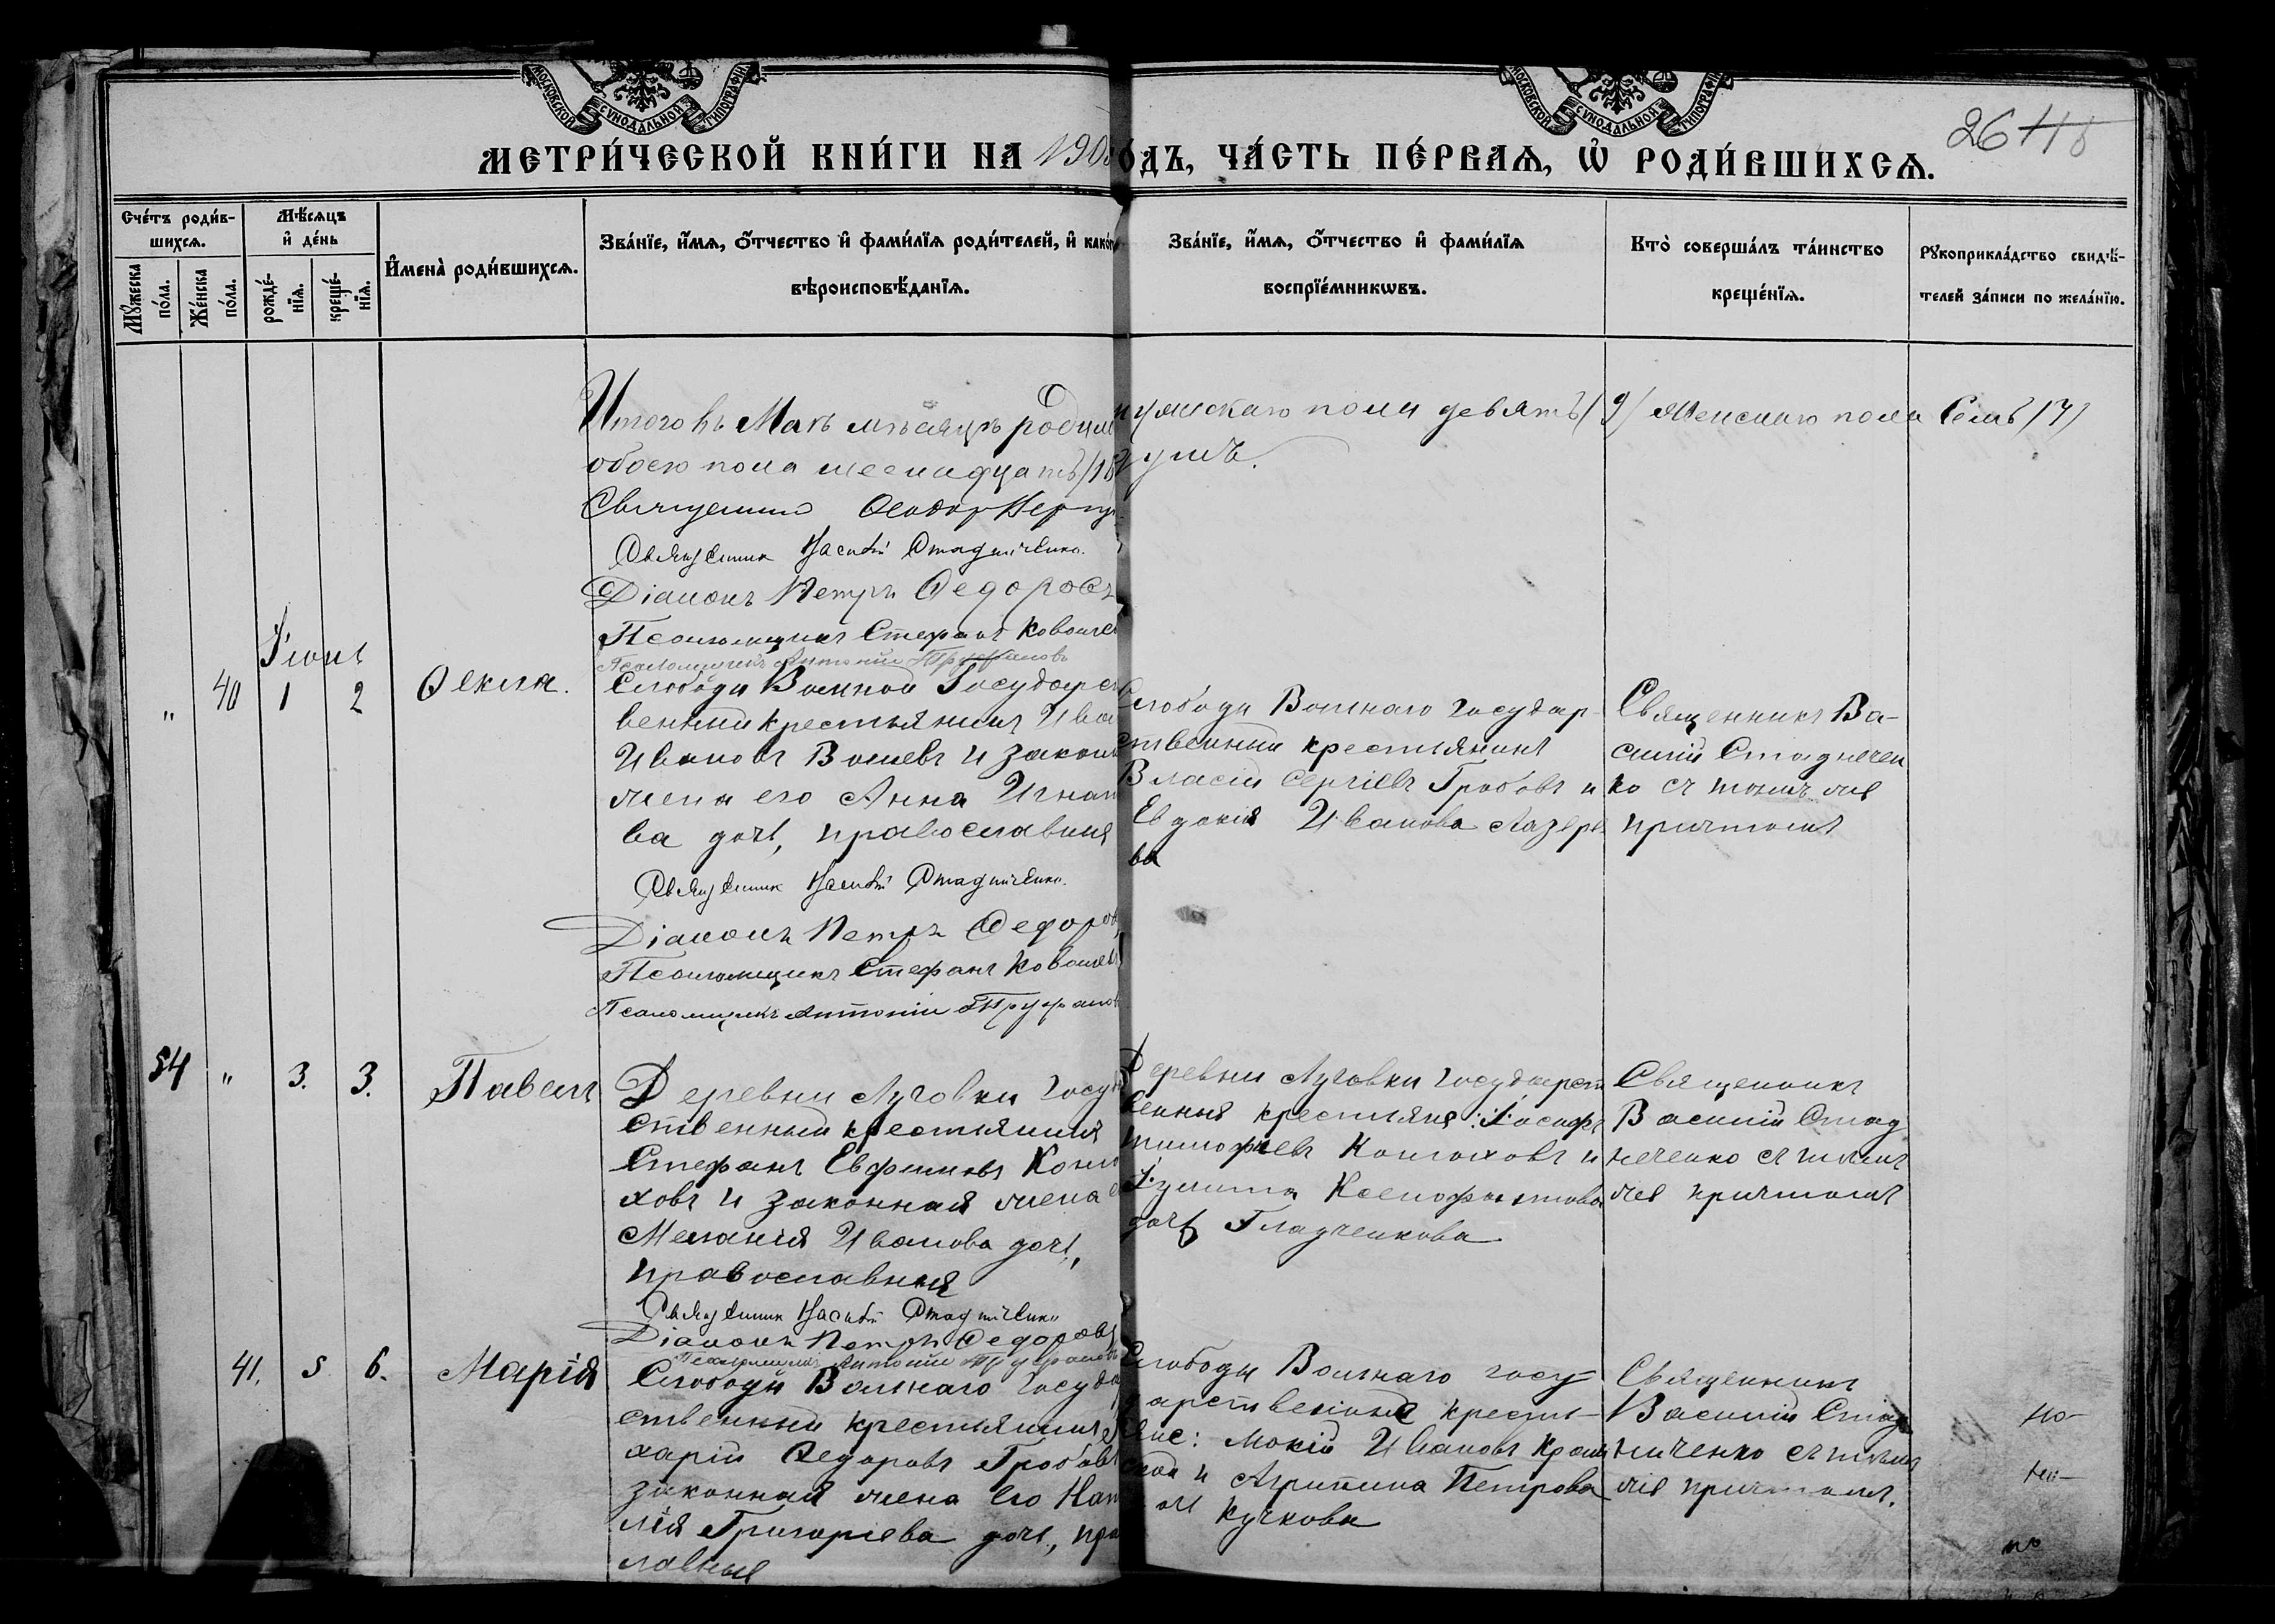 МОСКОВСКОЙ СѴНОДАЛЬНОЙ ТИПОГРАФІИ
МОСКОВСКОЙ СѴНОДАЛЬНОЙ ТИПОГРАФІИ
26
МЕТРИ́ЧЕСКОЙ КНИ́ГИ НА 190
О́ДЪ, ЧА́СТЬ ПЕ́РВАѦ, Ѡ҆ РОДИ́ВШИХСѦ.
Сче́тъ роди́в-
шихсѧ.
Мѣ́сѧцъ
и҆ де́нь
Мꙋ́жеска
по́ла.
Же́нска
по́ла.
рожде́-
нїѧ.
креще́-
нїѧ.
И҆мена̀ роди́вшихсѧ.
Зва́нїе, и҆́мѧ, ѻ҆́тчество и҆ фами́лїѧ роди́телей, и҆ како́
вѣроисповѣ́данїѧ.
Зва́нїе, и҆́мѧ, ѻ҆́тчество и҆ фами́лїѧ
воспрїе́мникѡвъ.
Кто̀ соверша́лъ та́инство
креще́нїѧ.
Рꙋкоприкла́дство свидѣ́-
телей за́писи по жела́нїю.
Итого въ Маѣ мѣсяцѣ родил
мужскаго пола девять /9/ Женскаго пола Семь /7/
обоего пола шестнадцать /16
душъ.
Священникъ Ѳеодоръ
Священник Василій Стадниченко.
Діаконъ Петръ Ѳедоровъ
Псаломщикъ Стефанъ Ковалев
Псаломщикъ Антоній Труфановъ
Іюнь
" 40 1 2
Ѳекла.
Слободы Волчной Государст
венный крестьянинъ Ива
Ивановъ Волевъ и закон
жена его Анна Игнат
ва дочь, православныя
Слободы Волчнаго государ-
ственный крестьянинъ
Власій Сергіевъ Гробовъ и
Евдокія Иванова Лазере
ва
Священникъ Ва-
силій Стаднечен
ко съ тѣмъ же
причтомъ
Священник Василій Стадниченко.
Діаконъ Петръ Ѳедоров
Псаломщикъ Стефанъ Ковалевъ
Псаломщикъ Антоній Труфанов
54 " 3. 3.
Павелъ
Деревни Луговки госуд
ственный крестьянинъ
Стефанъ Евфимовъ Коню
ховъ и законная жена е
Меланія Иванова дочь,
православныя
Деревни Луговки государст
венныя крестьяне: Іосифъ
Тимофеевъ Конюховъ и
Іулита Ксенофонтова
дочь Гладченкова
Священникъ
Василій Стад
неченко съ тѣмъ
же причтомъ
Священник Василій Стадниченко
Діаконъ Петръ Ѳедоровъ
Псаломщикъ Антоній Труфановъ
41. 5 6.
Марія
Слободы Волчнаго госуда
ственный крестьянинъ
харій Ѳедоровъ Гробовъ
законная жена его Ната
лія Григорьева дочь, пра
лавныя
Слободы Волчнаго госу-
дарственные кресть-
яне: Мокій Ивановъ
и Агрипина Петрова
дочь Кучкова
Священникъ
Василій Стад
ниченко съ тѣмъ
же причтомъ.